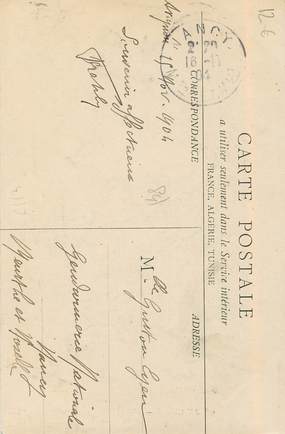 CARTE POSTALE
a utiliser seulement dans le Service intérieur
FRANCE, ALGERIE, TUNISIE
CORRESPONDANCE
ADRESSE
Avignon 15 Nov. 1904
Souvenir affectueux
M
Gendarmerie Nationale
Nancy
Meurthe et Moselle
12-6
84